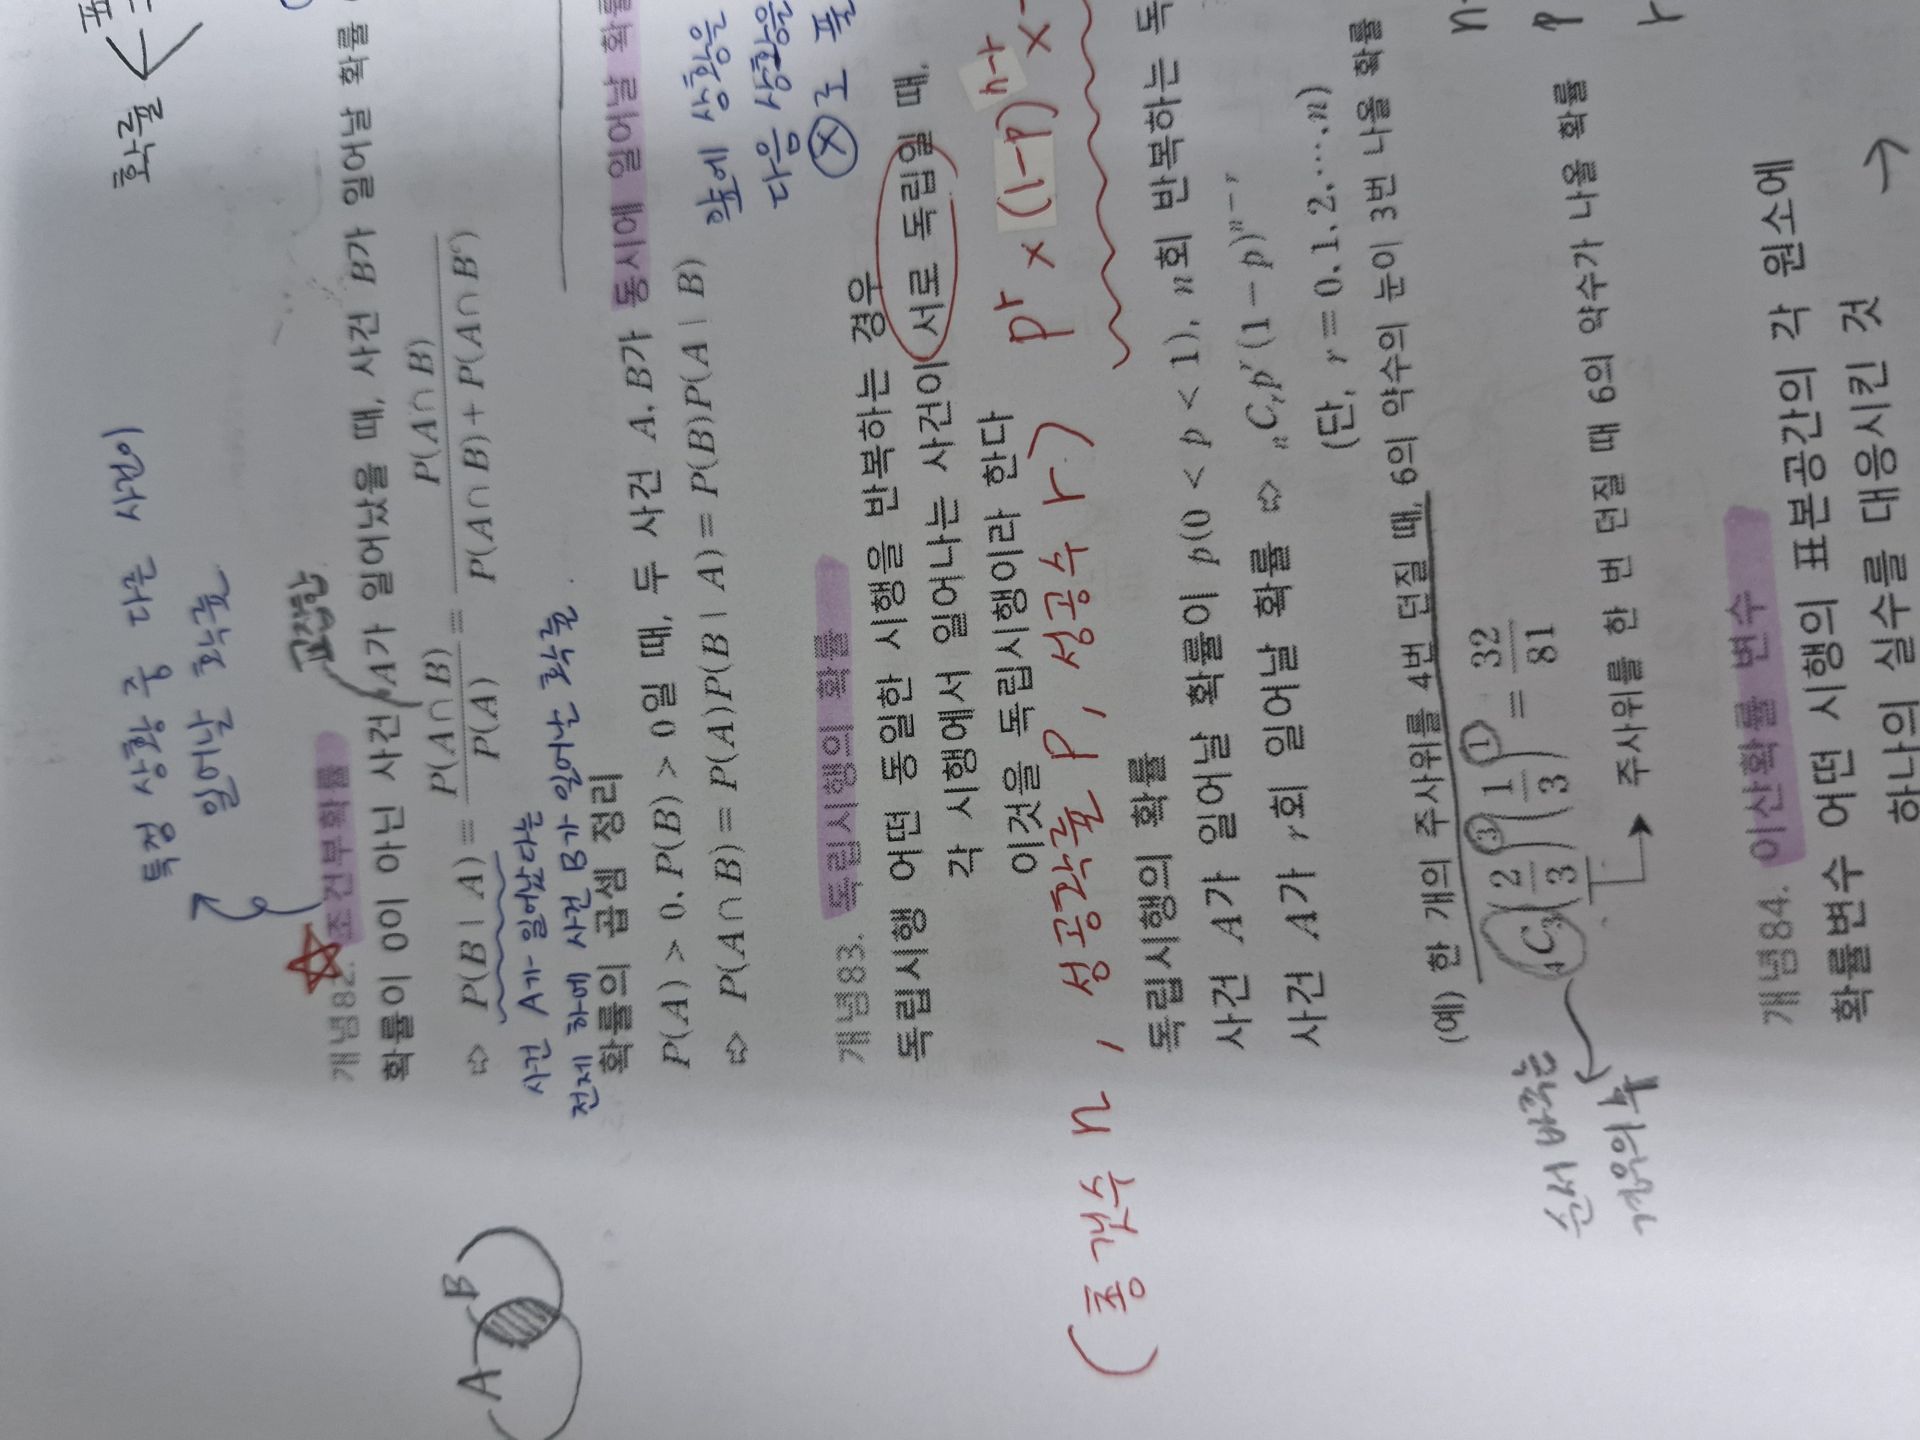 확률
특정 상황 중 다른 사건이
일어날 확률
교집합
개념82. 조건부확률
확률이 0이 아닌 사건 A가 일어났을 때, 사건 B가 일어날 확률
⇨ P(B | A) = P(A∩B)/P(A) = P(A∩B)/P(A∩B) + P(A∩Bᶜ)
A B
사건 A가 일어났다는
전제 하에 사건 B가 일어난 확률.
확률의 곱셈 정리
P(A) > 0, P(B) > 0일 때, 두 사건 A, B가 동시에 일어날 확률
⇨ P(A∩B) = P(A)P(B | A) = P(B)P(A | B)
앞에 상황은
다음 상황을
ⓧ로 풀
개념83. 독립시행의 확률
독립시행 어떤 동일한 시행을 반복하는 경우
각 시행에서 일어나는 사건이 서로 독립일 때,
이것을 독립시행이라 한다
pʳ × (1-p)ⁿ⁻ʳ ×
(총 갯수 n, 성공확률 p, 성공수 r)
독립시행의 확률
사건 A가 일어날 확률이 p(0 < p < 1), n회 반복하는 독
사건 A가 r회 일어날 확률 ⇨ ₙCᵣpʳ(1 − p)ⁿ⁻ʳ
(단, r = 0, 1, 2, ⋯, n)
(예) 한 개의 주사위를 4번 던질 때, 6의 약수의 눈이 3번 나올 확률
₄C₃(2/3)³(1/3)¹ = 32/81
순서 바꾸는
경우의 수
주사위를 한 번 던질 때 6의 약수가 나올 확률
n
p
r
개념84. 이산확률 변수
확률변수 어떤 시행의 표본공간의 각 원소에
하나의 실수를 대응시킨 것